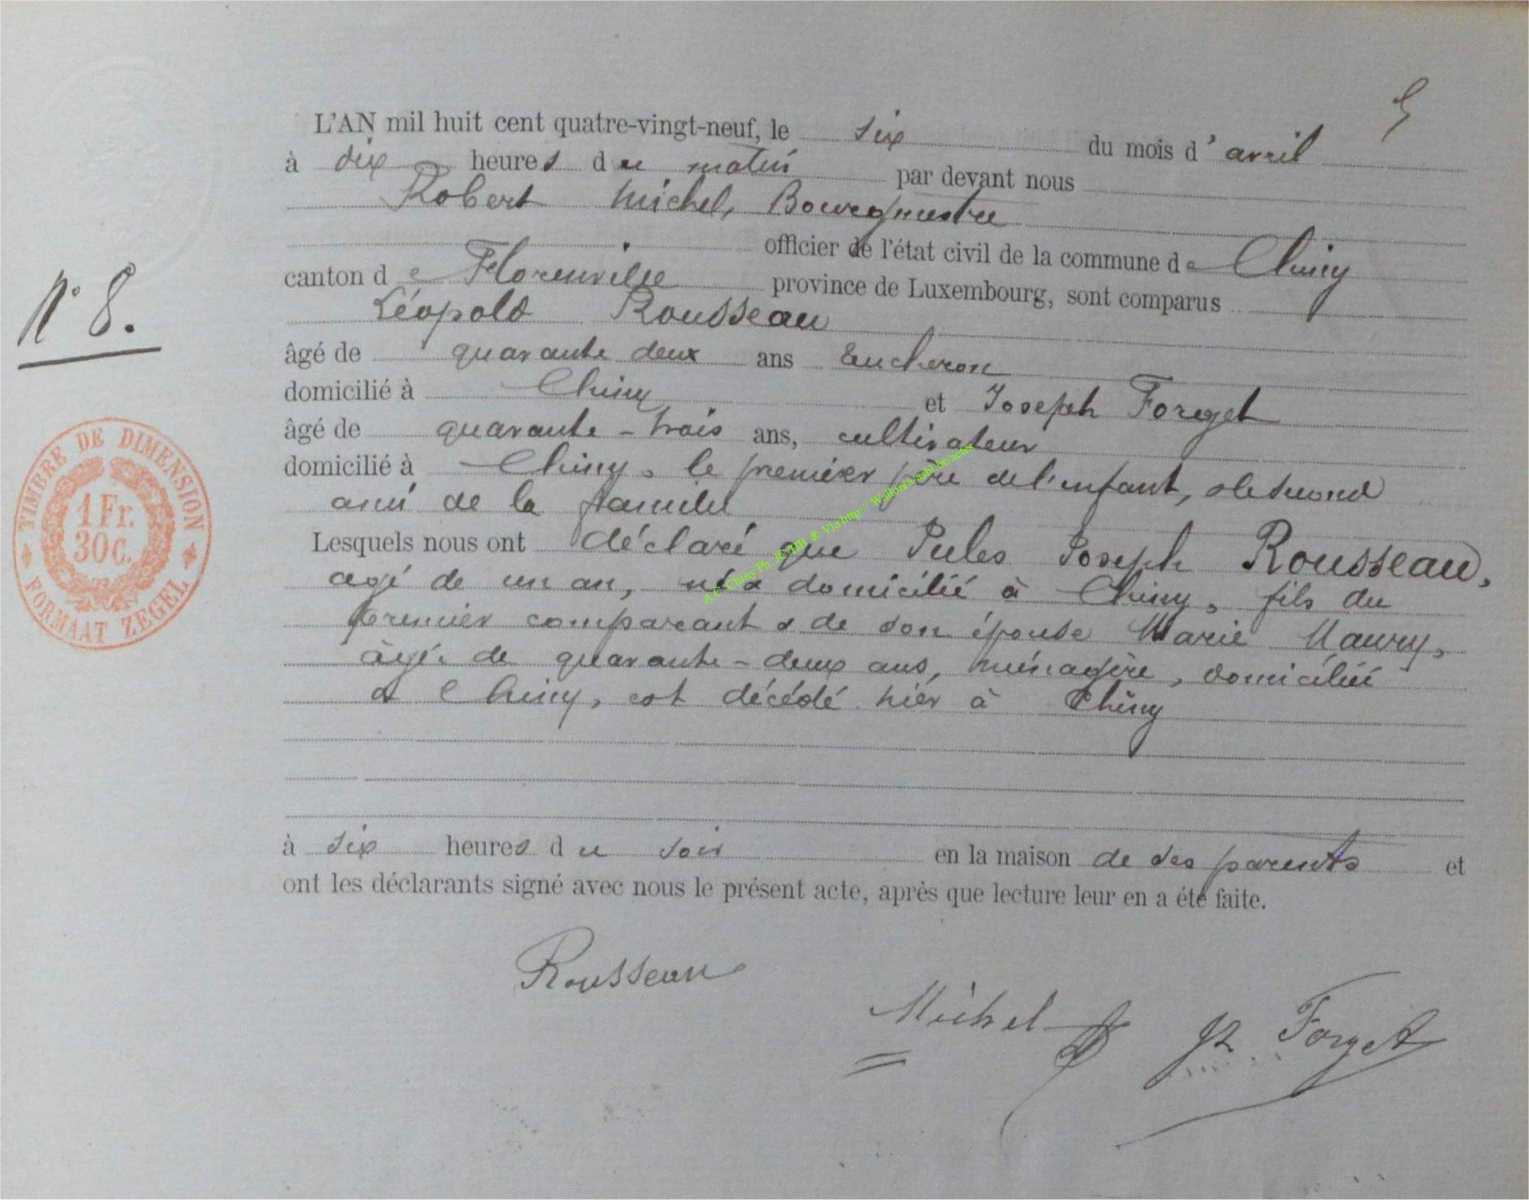 5
L'AN mil huit cent quatre-vingt-neuf, le six du mois d'avril
à dix heures du matin par devant nous
Robert Michel, Bourgmestre
officier de l'état civil de la commune de Chiny
canton de Florenville province de Luxembourg, sont comparus
Léopold Rousseau
N° 8.
âgé de quarante deux ans bucheron
domicilié à Chiny et Joseph Forget
âgé de quarante-trois ans, cultivateur
domicilié à Chiny, le premier père de l'enfant, & le second
ami de la famille
Lesquels nous ont déclaré que Jules Joseph Rousseau,
agé de un an, né & domicilié à Chiny, fils du
premier comparant & de son épouse Marie Maury,
âgée de quarante-deux ans, ménagère, domiciliée
à Chiny, est décédé hier à Chiny
à six heures du soir en la maison de ses parents et
ont les déclarants signé avec nous le présent acte, après que lecture leur en a été faite.
TIMBRE DE DIMENSION
1 Fr.
30 C.
FORMAAT ZEGEL
Rousseau
Michel
Jh Forget